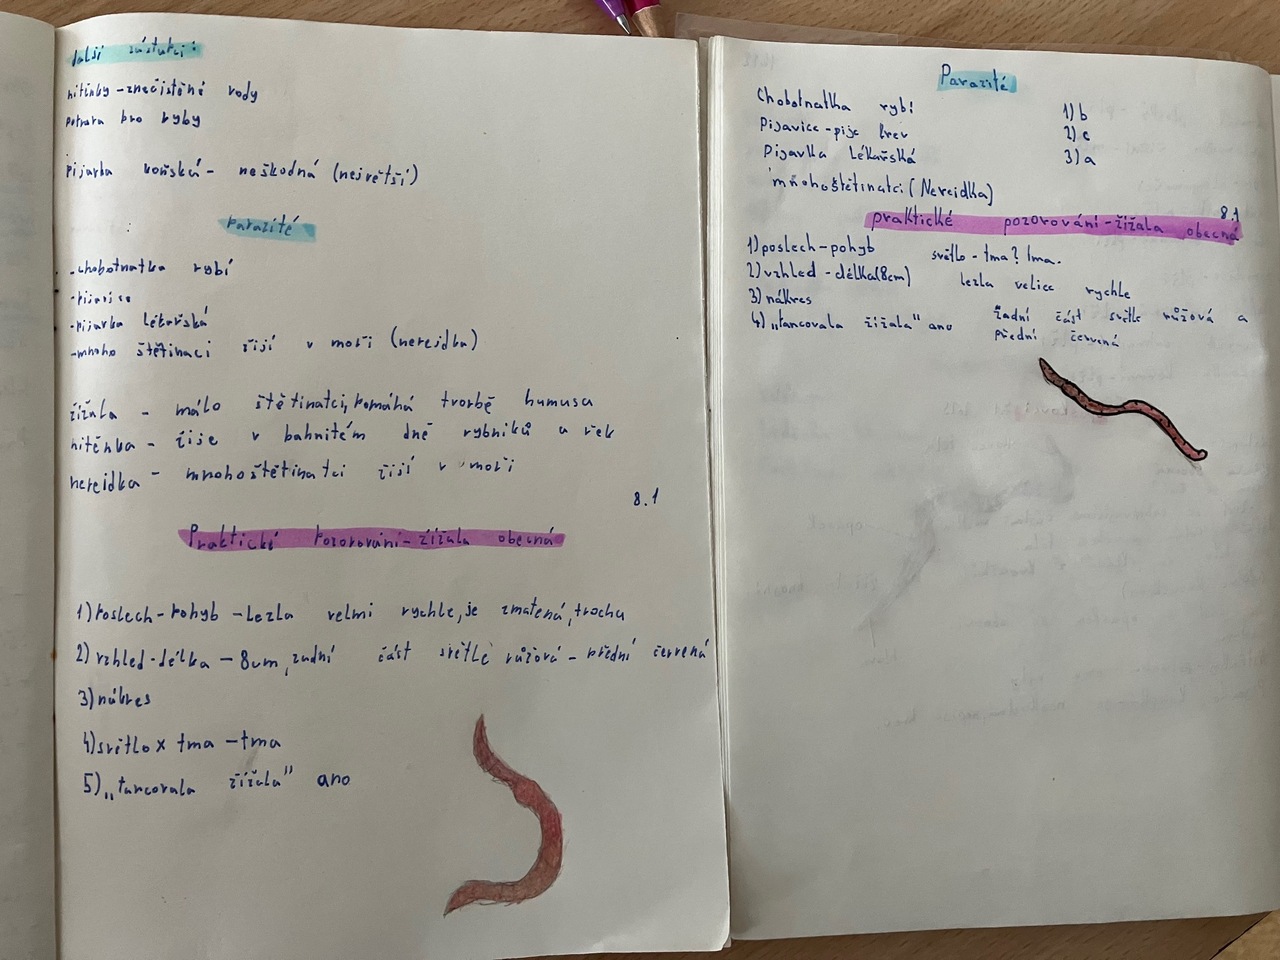 další zástupci:
nitěnky - znečistěné vody
potrava pro ryby
pijavka koňská - neškodná (největší)
Parazité
- chobotnatka rybí
- pijavice
- pijavka lékařská
- mnoho štětinaci žijí v moři (nereidka)
žížala - málo štětinatci, pomáhá tvorbě humusu
nitěnka - žije v bahnitém dně rybníků a řek
nereidka - mnohoštětinatci žijí v moři
8.1
Praktické pozorování - žížala obecná
1) poslech - pohyb - lezla velmi rychle, je zmatená, trochu
2) vzhled - délka - 8cm, zadní část světle růžová - přední červená
3) nákres
4) světlo x tma - tma
5) „tancovala žížala" ano
Parazité
Chobotnatka rybí 1) b
Pijavice - pije krev 2) c
Pijavka lékařská 3) a
mnohoštětinatci (Nereidka)
8.1
praktické pozorování - žížala obecná
1) poslech - pohyb světlo - tma? tma.
2) vzhled - délka (8cm) lezla velice rychle
3) nákres
4) „tancovala žížala" ano žadní část světle růžová a
přední červená